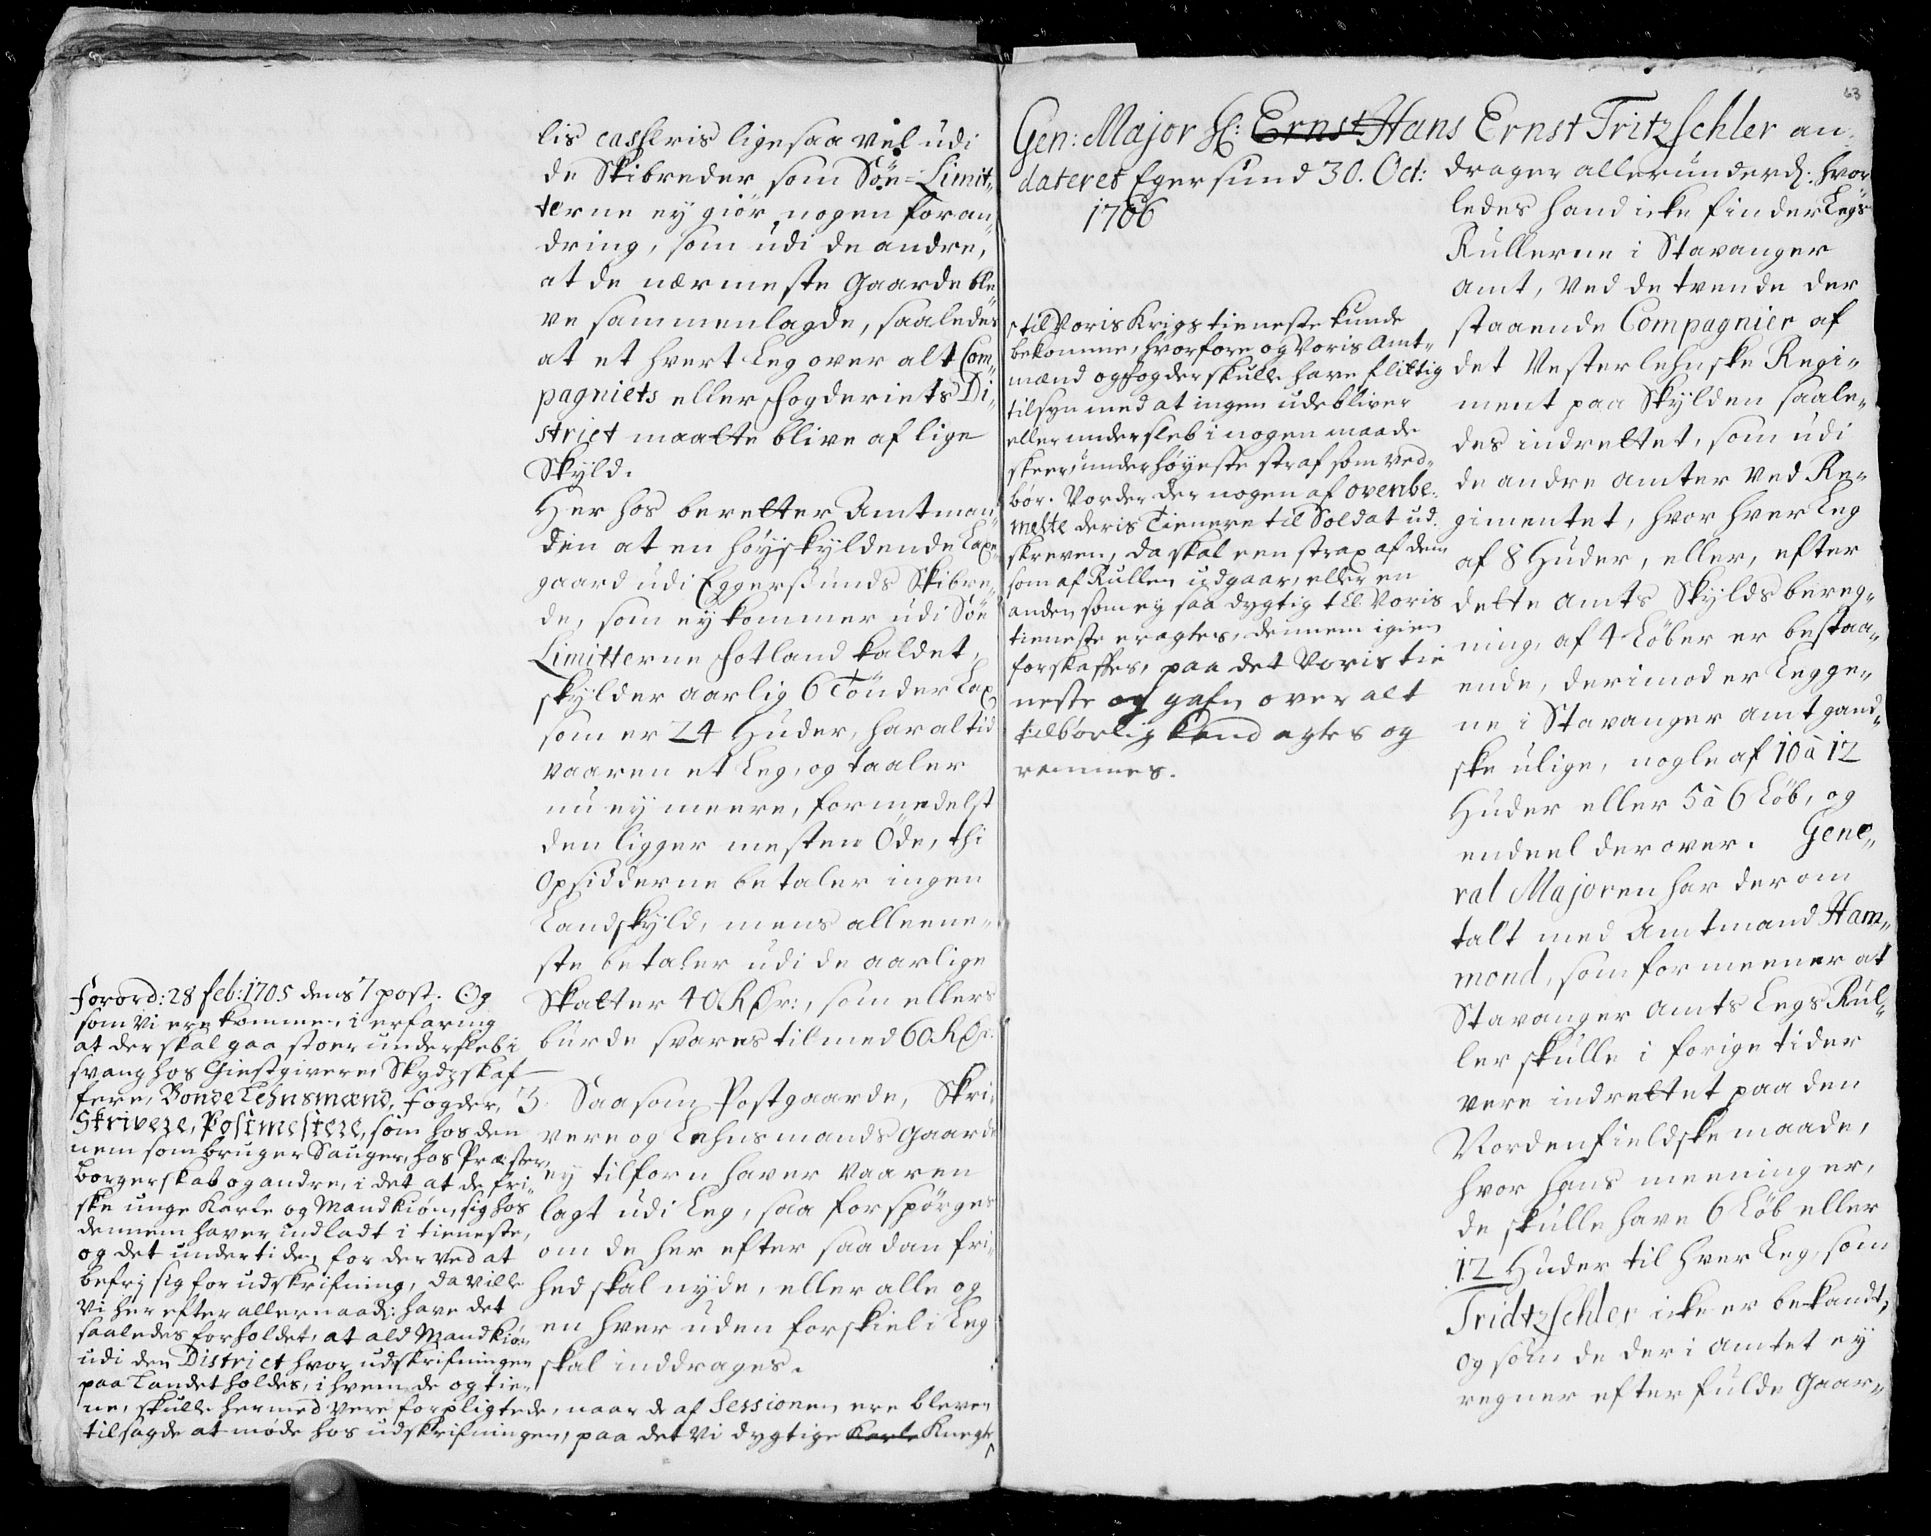 lis casseris ligesaa vel udi
de Skibreder som Søe-Limit„
terne ey giør nogen foran„
dring, som udi de andre,
at de nærmeste Gaarde ble„
ve sammenlagde, saaledes
at et hvert Leg over alt Com„
pagniets eller Fogderiets Di„
strict maatte blive af lige
Skyld.
Her hos beretter Amtman„
den at en høyskyldende Laxe„
gaard udi Eggersunds Skibre„
de, som ey kommer udi Søe
Limitterne Fotland kaldet,
skylder aarlig 6 Tønder Lax
som er 24 Huder, har altid
vaaren et Leg, og taaler
nu ey meere, formedelst
den ligger mesten Øde, thi
Opsidderne betaler ingen
Landskyld, mens alleene„
ste betaler udi de aarlige
Skatter 40 Rdr:, som ellers
burde svares til med 60 Rdr.
3. Saasom Postgaarde, Skri„
vere og Lehnsmands Gaarde
ey tilforn haver vaaren
lagt udi Leg, saa forspørges
om de her efter saadan fri„
hed skal nyde, eller alle og
en hver uden forskiel i Leg
skal inddrages.
Forord: 28 feb: 1705 dens 7 post. Og
som vi ere komme i erfaring
at der skal gaa stoer underslebi
svang hos Giestgivere, Skydzskaf
fere, Bonde Lehnsmænd, Fogder,
Skrivere, Postmestere, som hos den
nem som bruger Sauger, hos Præster,
borgerskab og andre, i det at de fri„
ske unge Karle og Mandkiøn, sig hos
dennem haver indladt i tieneste,
og det undertiden for der ved at
befrj sig for udskrifning, da ville
Vi her efter allernaad: have det
saaledes forholdet, at ald Mandkiøn
udi den District hvor udskrifningen
paa Landet holdes, i hvem de og tie„
ne, skulle hermed vere forpligtede, naar de af Sessionen ere bleven
tilsagde at møde hos udskrifningen, paa det Vi dygtige Karle Knegte
63
Gen: Major Hr: Ernst Hans Ernst Tritzschler an„
dateret Egersund 30. Oct:
1706
til Voris Krigs tieneste kunde
bekomme, hvorfore og Voris Amt„
mænd og Fogder skulle have flittig
tilsyn med at ingen udebliver
eller undersleb i nogen maade
skeer, under høyeste straf som ved„
bør. Vorder der nogen af ovenbe„
melte deris Tienere til Soldat ud„
skreven, da skal een strax af dem
som af Rullen udgaar, eller en
anden som ey saa dygtig til Voris
tieneste eragtes, dennem igien
forskaffes, paa det Voris tie
neste og gafn over alt
tilbørlig kand agtes og
rammes.
drager allerunderd: hvor
ledes hand icke finder Legs
Rullerne i Stavanger
Amt, ved de tvende der
staaende Compagnier af
det Vesterlehnske Regi„
ment paa Skylden saale„
des indrettet, som udi
de andre Amter ved Re„
gimentet, hvor hver Leg
af 8 Huder, eller, efter
dette Amts Skylds bereg„
ning, af 4 Løber er bestaa„
ende, derimod er Legge„
ne i Stavanger Amt gand„
ske ulige, nogle af 10 à 12
Huder eller 5 à 6 Løb, og
endeel derover. Gene„
ral Majoren har derom
talt med Amtmand Ham„
mond, som formeener at
Stavanger Amts Legs Rul„
ler skulle i forige tider
vere indrettet paa den
Nordenfieldske maade,
hvor hans meening er,
de skulle have 6 Løb eller
12 Huder til hver Leg, som
Tridtzschler icke er bekandt,
og som de der i Amtet ey
regner efter fulde Gaar„